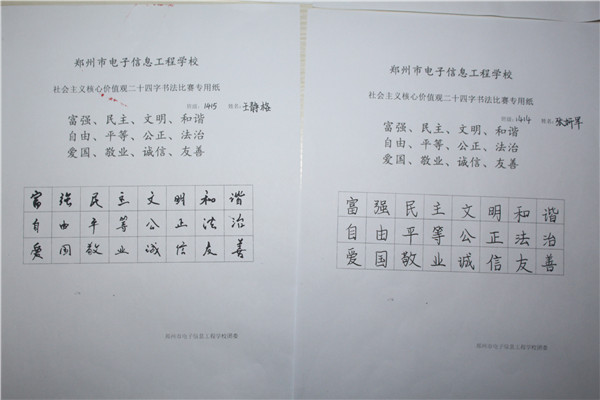 郑州市电子信息工程学校
社会主义核心价值观二十四字书法比赛专用纸
班级：1415 姓名：王静格
富强、民主、文明、和谐
自由、平等、公正、法治
爱国、敬业、诚信、友善
富强民主文明和谐
自由平等公正法治
爱国敬业诚信友善
郑州市电子信息工程学校团委
郑州市电子信息工程学校
社会主义核心价值观二十四字书法比赛专用纸
班级：1414 姓名：
富强、民主、文明、和谐
自由、平等、公正、法治
爱国、敬业、诚信、友善
富强民主文明和谐
自由平等公正法治
爱国敬业诚信友善
郑州市电子信息工程学校团委